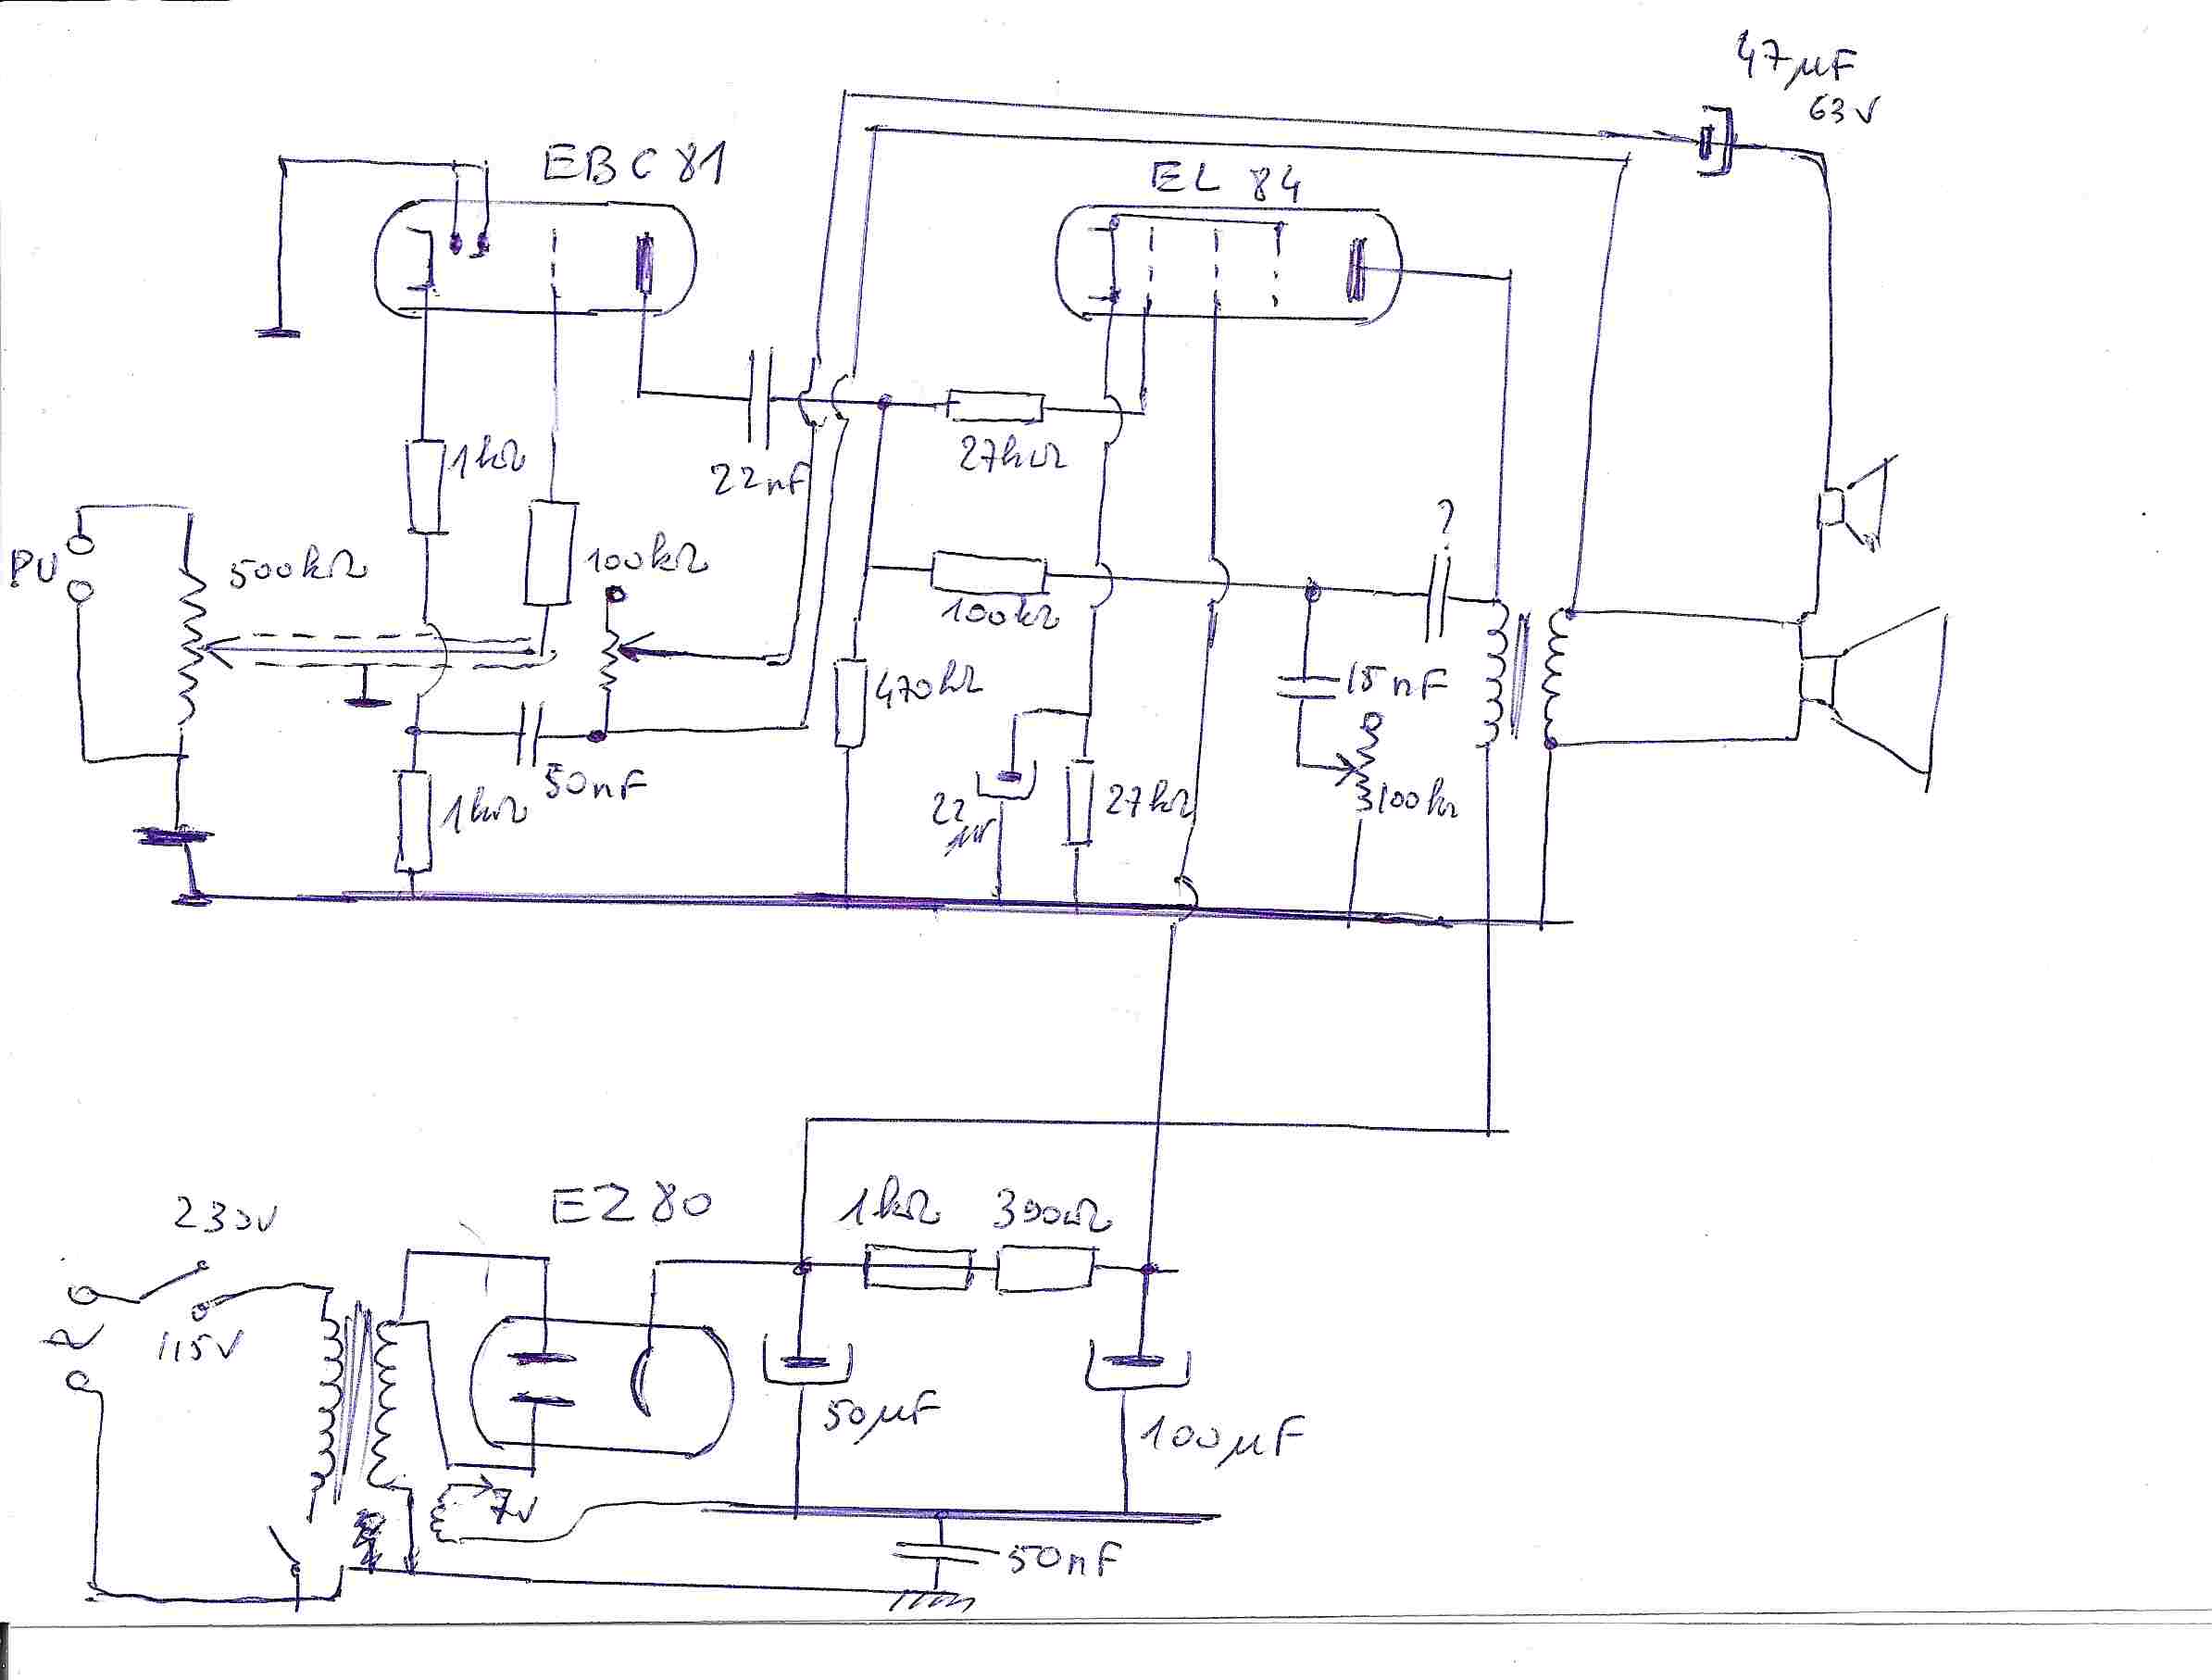 47µF
63V
EBC 81
EL 84
1kΩ
22nF
27kΩ
PU
500kΩ
100kΩ
?
100kΩ
470kΩ
15nF
50nF
1kΩ
22
µF
27kΩ
100kΩ
EZ 80
1kΩ
390Ω
230V
115V
50µF
100µF
7V
50nF